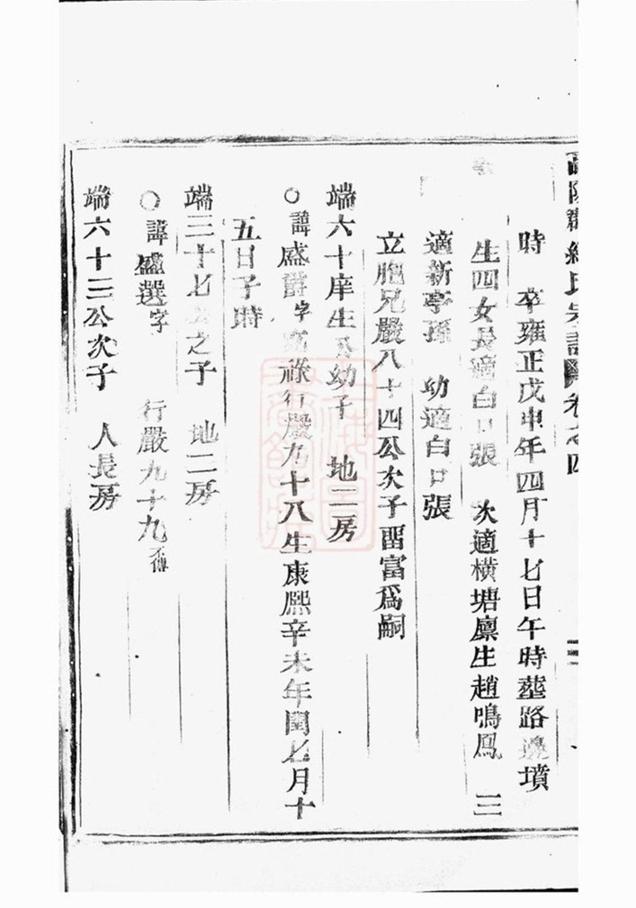 氏宗譜 卷之四
時 卒雍正戊申年四月十七日午時塟路邊墳
生四女長適白口張 次適横塘廪生趙鳴鳳 三
適新亭孫 幼適白口張
立胞兄嚴八十四公次子畱富爲嗣
端六十庠生公幼子 地二房
○諱盛爵字 祿行嚴九十八生康熙辛未年閏七月十
五日子時
端三十七公之子 地二房
○諱盛選字 行嚴九十九
端六十三公次子 人長房